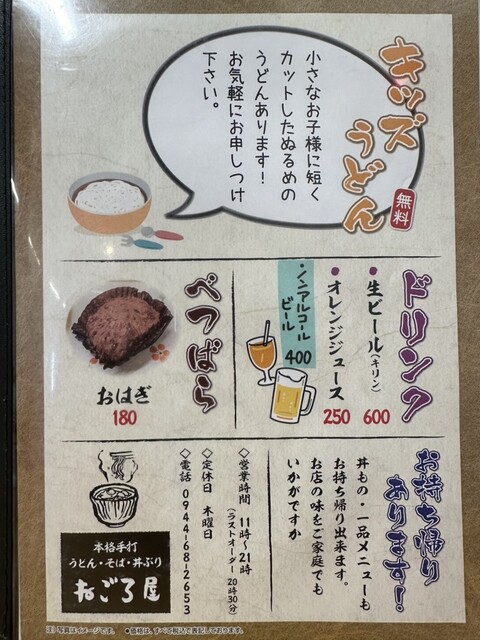 キッズうどん
無料
小さなお子様に短く
カットしたぬるめの
うどんあります！
お気軽にお申しつけ
下さい。
ドリンク
・生ビール（キリン） 600
・オレンジジュース 250
・ノンアルコールビール 400
べつばら
おはぎ
180
お持ち帰り
あります！
丼もの・一品メニューも
お持ち帰り出来ます。
お店の味をご家庭でも
いかがですか
◇営業時間 11時〜21時
（ラストオーダー 20時30分）
◇定休日 木曜日
◇電話 0944-68-2653
本格手打
うどん・そば・丼ぶり
ねごろ屋
注）写真はイメージです。 ●価格は、すべて税込で表記しております。